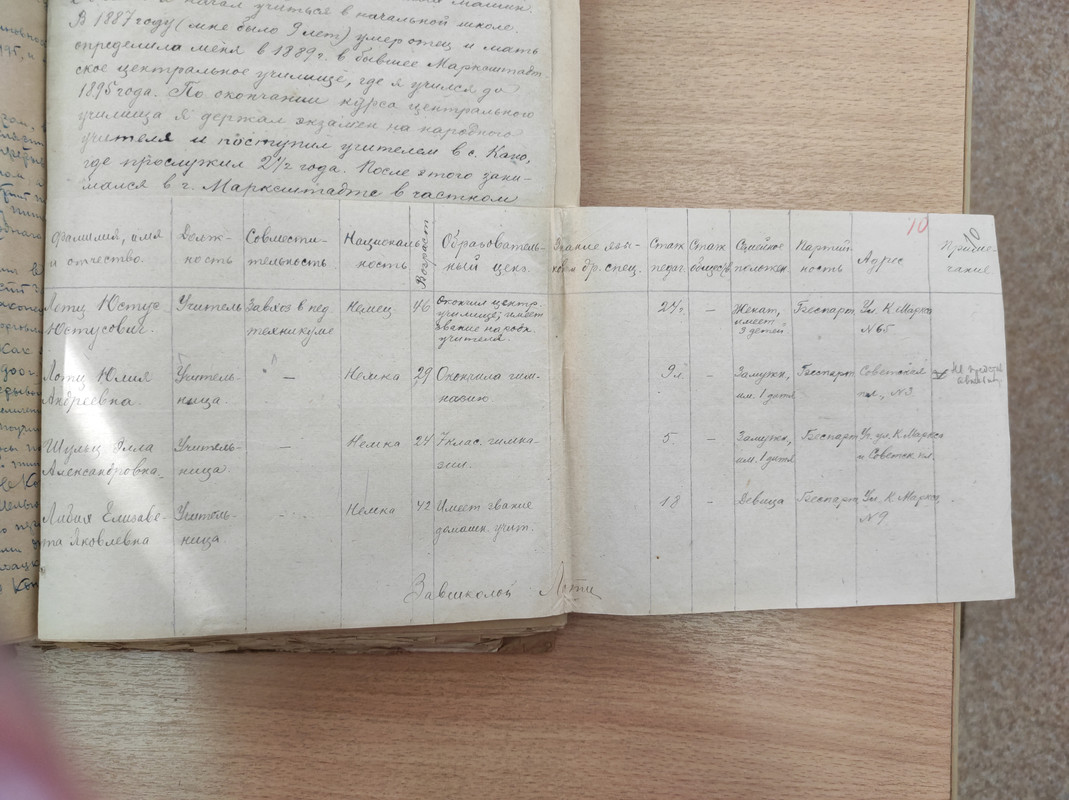 и начал учиться в начальной школе.
В 1887 году (мне было 9 лет) умер отец и мать
определила меня в 1889 г. в бывшее Марксштадт.
ское центральное училище, где я учился до
1895 года. По окончании курса центрального
училища я держал экзамен на народного
учителя и поступил учителем в с. Кано,
где прослужил 2 1/2 года. После этого зани-
мался в г. Марксштадте в частном
10
10
Фамилия, имя
и отчество.
Долж-
ность
Совмести-
тельность.
Националь-
ность
Возраст
Образователь-
ный ценз.
Знание язы-
ков и др. спец.
Стаж
педаг.
Стаж
обществ.
Семейное
положен.
Партий-
ность
Адрес
Приме-
чание
Лотц Юстус
Юстусович.
Учитель
Завхоз в пед.
техникуме
Немец
46
Окончил центр.
училище; имеет
звание народн.
учителя.
27 г.
—
Женат,
имеет
3 детей
Беспарт.
Ул. К. Маркса
№ 65
Лотц Юлия
Андреевна.
Учитель-
ница.
—
Немка
29
Окончила гим-
назию
9 л.
—
Замужн.,
им. 1 дитя
Беспарт.
Советская
пл., № 3.
Шульц Элла
Александровна.
Учитель-
ница.
—
Немка
24
7 клас. гимна-
зии.
5
—
Замужн.,
им. 1 дитя
Беспарт.
Уг. ул. К. Маркса
и Советск. пл.
Елизаве-
та Яковлевна
Учитель-
ница.
—
Немка
42
Имеет звание
домашн. учит.
18
—
Девица
Беспарт.
Ул. К. Маркса
№ 9
Завшколой Лотц